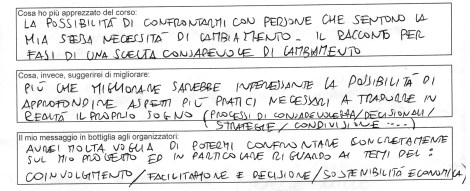 Cosa ho più apprezzato del corso:
LA POSSIBILITÀ DI CONFRONTARMI CON PERSONE CHE SENTONO LA
MIA STESSA NECESSITÀ DI CAMBIAMENTO - IL RACCONTO PER
FASI DI UNA SCELTA CONSAPEVOLE DI CAMBIAMENTO
Cosa, invece, suggerirei di migliorare:
PIÙ CHE MIGLIORARE SAREBBE INTERESSANTE LA POSSIBILITÀ DI
APPROFONDIRE ASPETTI PIÙ PRATICI NECESSARI A TRADURRE IN
REALTÀ IL PROPRIO SOGNO (PROCESSI DI CONSAPEVOLEZZA/DECISIONALI/
STRATEGIE/CONDIVISIONE ....)
Il mio messaggio in bottiglia agli organizzatori:
AVREI MOLTA VOGLIA DI POTERMI CONFRONTARE CONCRETAMENTE
SUL MIO PROGETTO ED IN PARTICOLARE RIGUARDO AI TEMI DEL:
COINVOLGIMENTO / FACILITAZIONE E DECISIONE / SOSTENIBILITÀ ECONOMICA/